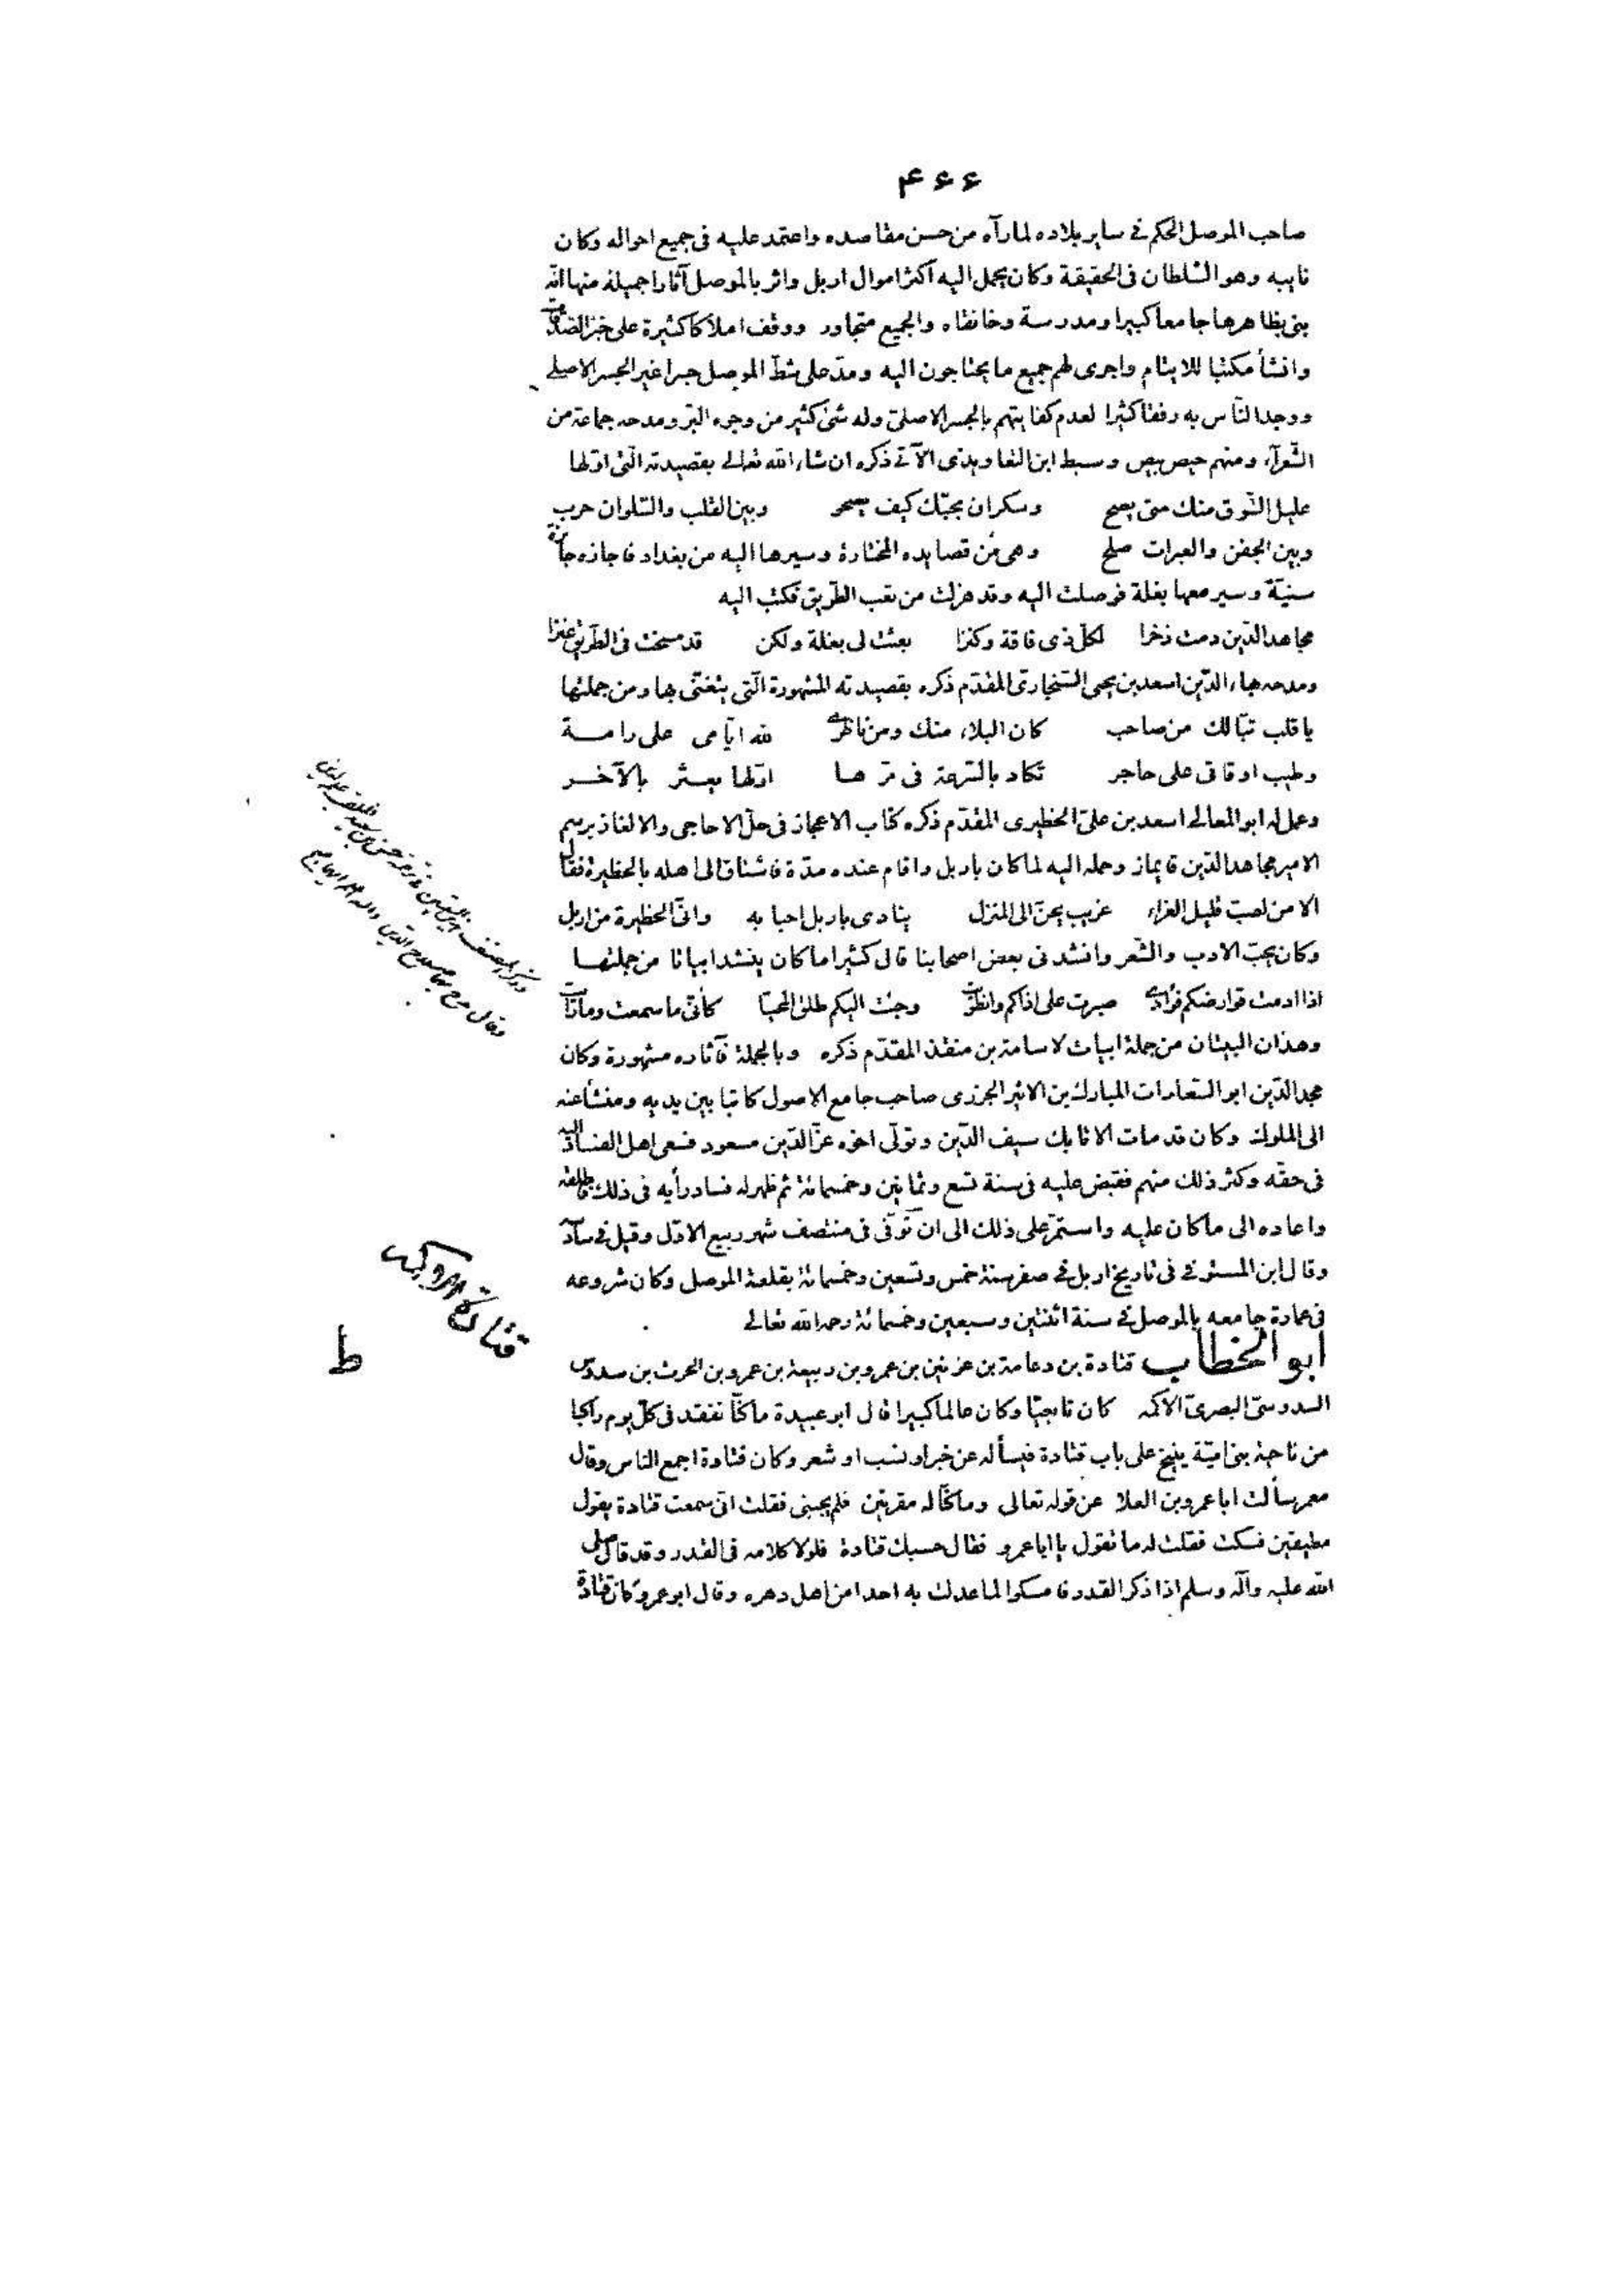 ۴۶۶
صاحب الموصل الحكم فى ساير بلاده لما رآه من حسن مقاصده واعتمد عليه فى جميع احواله وكان
نايبه وهو السّلطان فى الحقيقة وكان يحمل اليه اكثر اموال اربل واثر بالموصل آثارا جميلة منها انّه
بنى بظاهرها جامعا كبيرا ومدرسة وخانقاه والجميع متجاور ووقف املاكا كثيرة على خبز الصّدقات
وانشأ مكتبا للايتام واجرى لهم جميع ما يحتاجون اليه ومدّ على شطّ الموصل جسرا غير الجسر الاصلى
ووجد النّاس به رفقا كثيرا لعدم كفايتهم بالجسر الاصلىّ وله شئ كثير من وجوه البرّ ومدحه جماعة من
الشّعرآء ومنهم حيص بيص وسبط ابن التعاويذى الآتى ذكره ان شاء الله تعالى بقصيدته الّتى اوّلها
عليل الشّوق منك متى يصح وسكران بحبّك كيف يصحو وبين القلب والسّلوان حرب
وبين الجفن والعبرات صلح وهى من قصايده المختارة وسيرها اليه من بغداد فاجازه جايزة
سنيّة وسير معها بغلة فوصلت اليه وقد هزلت من تعب الطّريق فكتب اليه
مجاهد الدّين دمت ذخرا لكلّ ذى فاقة وكنزا بعثت لى بغلة ولكن قد مسخت فى الطّريق عنزا
ومدحه بهاء الدّين اسعد بن يحيى السّنجارىّ المقدّم ذكره بقصيدته المشهورة الّتى يتغنّى بها ومن جملتها
يا قلب تبّا لك من صاحب كان البلاء منك ومن ناظرى لله ايّامى على رامة
وطيب اوقاتى على حاجر تكاد بالسّرعة فى مرّها اوّلها يعثر بالآخر
وعمل له ابو المعالى اسعد بن علىّ الحظيرى المقدّم ذكره كتاب الاعجاز فى حلّ الاحاجى والالغاز برسم
الامير مجاهد الدّين قايماز وحمله اليه لما كان باربل واقام عنده مدّة فاشتاق الى اهله بالحظيرة فقال
الا من لصبّ قليل العزاء غريب يحنّ الى المنزل ينادى باربل احبابه وانّى الحظيرة من اربل
وكان يحبّ الادب والشّعر وانشدنى بعض اصحابنا قال كثيرا ما كان ينشد ابياتا من جملتها
اذا ادمت قوارضكم فؤادى صبرت على اذاكم وانطويت وجئت اليكم طلق المحيّا كأنّى ما سمعت وما رأيت
وهذان البيتان من جملة ابيات لاسامة بن منقذ المقدّم ذكره وبالجملة فآثاره مشهورة وكان
مجد الدّين ابو السّعادات المبارك بن الاثير الجزرى صاحب جامع الاصول كاتبا بين يديه ومنشأ عنه
الى الملوك وكان قد مات الاتابك سيف الدّين وتولّى اخوه عزّ الدّين مسعود فسعى اهل الفساد اليه
فى حقّه وكثر ذلك منهم فقبض عليه فى سنة تسع وثمانين وخمسمائة ثم ظهر له فساد رأيه فى ذلك فاطلقه
واعاده الى ما كان عليه واستمرّ على ذلك الى ان توفّى فى منتصف شهر ربيع الاوّل وقيل فى سادسه
وقال ابن المستوفى فى تاريخ اربل فى صفر سنة خمس وتسعين وخمسمائة بقلعة الموصل وكان شروعه
فى عمارة جامعه بالموصل فى سنة اثنتين وسبعين وخمسمائة رحمه الله تعالى
ابو الخطاب قتادة بن دعامة بن عزيز بن عمرو بن ربيعة بن عمرو بن الحرث بن سدوس
السدوسىّ البصرىّ الاكمه كان تابعيّا وكان عالما كبيرا قال ابو عبيدة ما كنّا نفقد فى كلّ يوم راكبا
من ناحية بنى اميّة ينيخ على باب قتادة فيسأله عن خبر او نسب او شعر وكان قتادة اجمع الناس وقال
معمر سألت ابا عمرو بن العلا عن قوله تعالى وما كنّا له مقرنين فلم يجبنى فقلت انّى سمعت قتادة يقول
مطيقين فسكت فقلت له ما تقول يا ابا عمرو فقال حسبك قتادة فلولا كلامه فى القدر وقد قال صلى
الله عليه وآله وسلم اذا ذكر القدر فامسكوا لما عدلت به احدا من اهل دهره وقال ابو عمرو كان قتادة
قتادة
ط